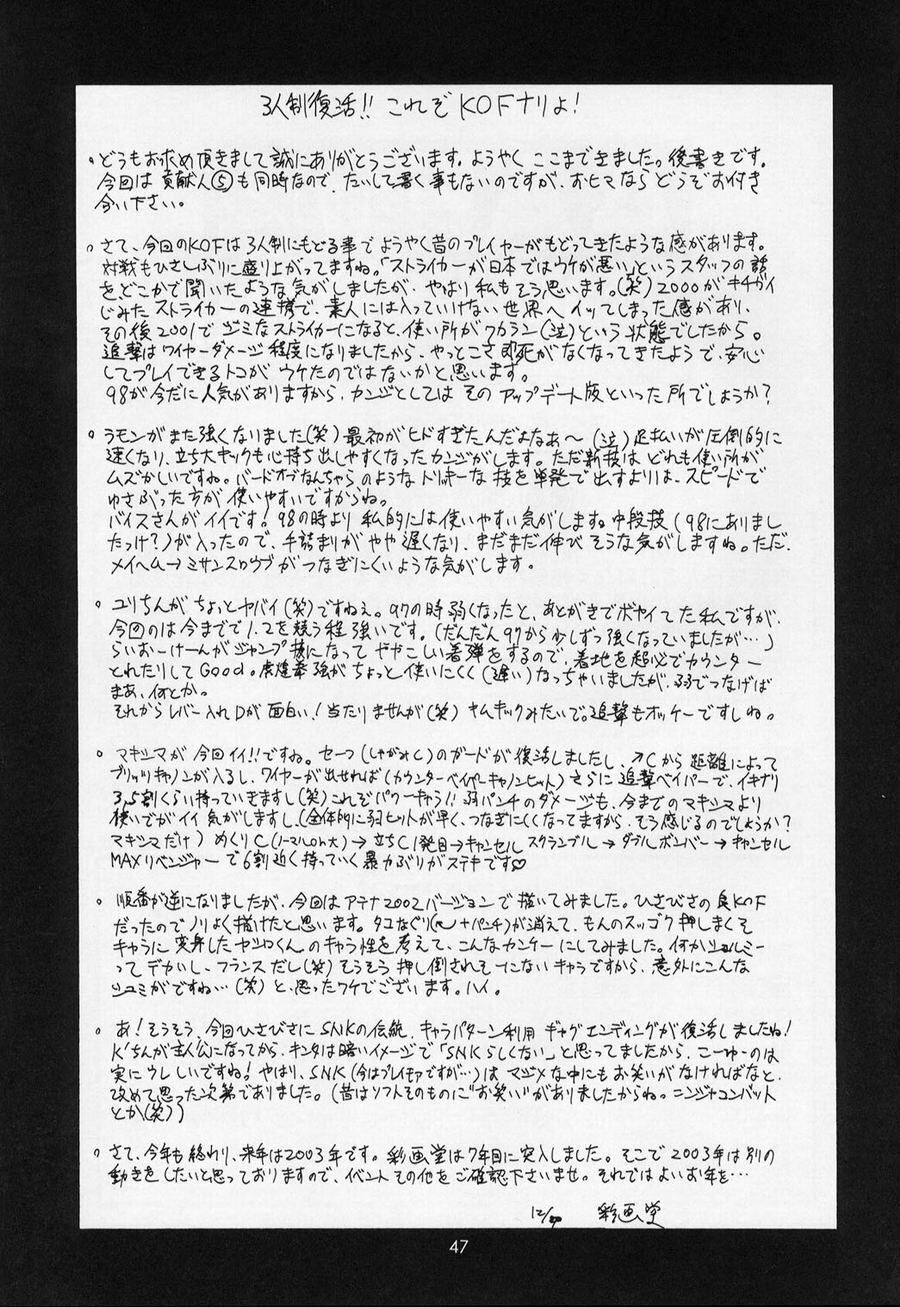 3人制復活!! これぞKOFナリよ!
。どうもお求め頂きまして誠にありがとうございます。ようやく ここまできました。後書きです。
今回は 貢献人⑤も同時なので、たいして書く事もないのですが、おヒマなら どうぞお付き
合い下さい。
。さて、今回のKOFは 3人制にもどる事で ようやく昔のプレイヤーがもどってきたような 感があります。
対戦もひさしぶりに盛り上がってますね。「ストライカーが日本ではウケが悪い」というスタッフの 話
を、どこかで聞いたような気がしましたが、やはり 私もそう思います。(笑) 2000が キチガイ
じみた ストライカーの連携で、素人には入っていけない世界へ イッてしまった感があり、
その後2001で ジミなストライカーになると、使い所が ワカラン(泣)という 状態でしたから。
追撃はワイヤーダメージ 程度になりましたから、やっとこさ即死がなくなってきたようで、安心
してプレイできるトコが ウケたのではないかと思います。
98が今だに人気がありますから、カンジとしては その アップデート版といった 所でしょうか?
。ラモンがまた強くなりました(笑) 最初がヒドすぎたんだよなあ〜 (泣) 足払いが圧倒的に
速くなり、立ち大キックも心持ち出しやすくなったカンジがします。ただ新技は どれも使い所が
ムズかしいですね。バードオブなんちゃらのような トリッキーな 技を単発で出すよりは、スピードで
ゆさぶった方が 使いやすいですからね。
バイスさんがイイです! 98の時より 私的には使いやすい気がします。中段技 (98にありまし
たっけ?)が入ったので、手詰まりが やや 遅くなり、まだまだ伸び そうな気がしますね。ただ、
メイヘム→ミサンスロウプ がつなぎにくいような気がします。
。ユリちんが ちょっとヤバイ(笑)ですねぇ。97の時弱くなったと、あとがきでボヤイてた私ですが、
今回のは今までで1、2を競う程 強いです。(だんだん97から少しずつ強くなっていましたが…)
らいおーけーんが ジャンプ 技になって ややこしい着弾をするので、着地を超必でカウンター
とれたりして Good。虎煌拳強がちょっと使いにくく(遅い)なっちゃいましたが、弱でつなげば
まあ、何とか。
それから レバー入れDが 面白い! 当たりませんが(笑) キムキックみたいで。追撃もオッケーですしね。
。マキシマが 今回イイ!!ですね。セーフ(しゃがみC)のガードが復活しましたし、↗Cから 距離によって
ブリッツキャノンが入るし、ワイヤーが出せれば(カウンターベイパーキャノンヒット) さらに 追撃ベイパーで、イキナリ
3、5割くらい持っていきますし(笑)これぞパワーキャラ!! 弱パンチのダメージも、今までのマキシマより
使いでがイイ 気がしますし、(全体的に弱ヒットが早く、つなぎにくくなってますから、そう感じるのでしょうか?
マキシマだけ) めくりC(ノーマルのみ大)→立ちC1発目→キャンセル スクランブル→ダブルボンバー→キャンセル
MAXリベンジャー で6割近く持っていく暴力ぶりがステキです♡
。順番が逆になりましたが、今回はアテナ2002バージョンで描いてみました。ひさびさの良KOF
だったのでノリよく描けたと思います。タコなぐり(+パンチ)が消えて、もんのスッゴク押しまくそ
キャラに 変身した ヤシロくんのキャラ性を考えて、こんなカンケーにしてみました。何かシェルミー
ってデカいし、フランスだし(笑)そうそう 押し倒されそーにないキャラですから、意外にこんな
シュミがですね…(笑) と、思ったワケでございます。ハイ。
。あ!そうそう、今回ひさびさに SNKの伝統、キャラパターン利用 ギャグエンディングが復活しましたね!
K'ちんが主人公になってから、キンタは暗いイメージで「SNKらしくない」と思ってましたから、こーゆーのは
実に ウレしいですね! やはり、SNK(今はプレイモアですが…)は マジメな中にもお笑いがなければなと、
改めて思った次第でありました。(昔はソフトそのものに"お笑い"がありましたからね。ニンジャコンバット
とか(笑))
。さて、今年も 終わり、来年は2003年です。彩画堂は7年目に突入しました。そこで2003年は別の
動きをしたいと思っておりますので、イベントその他を ご確認下さいませ。それではよいお年を…
12/ 彩画堂
47